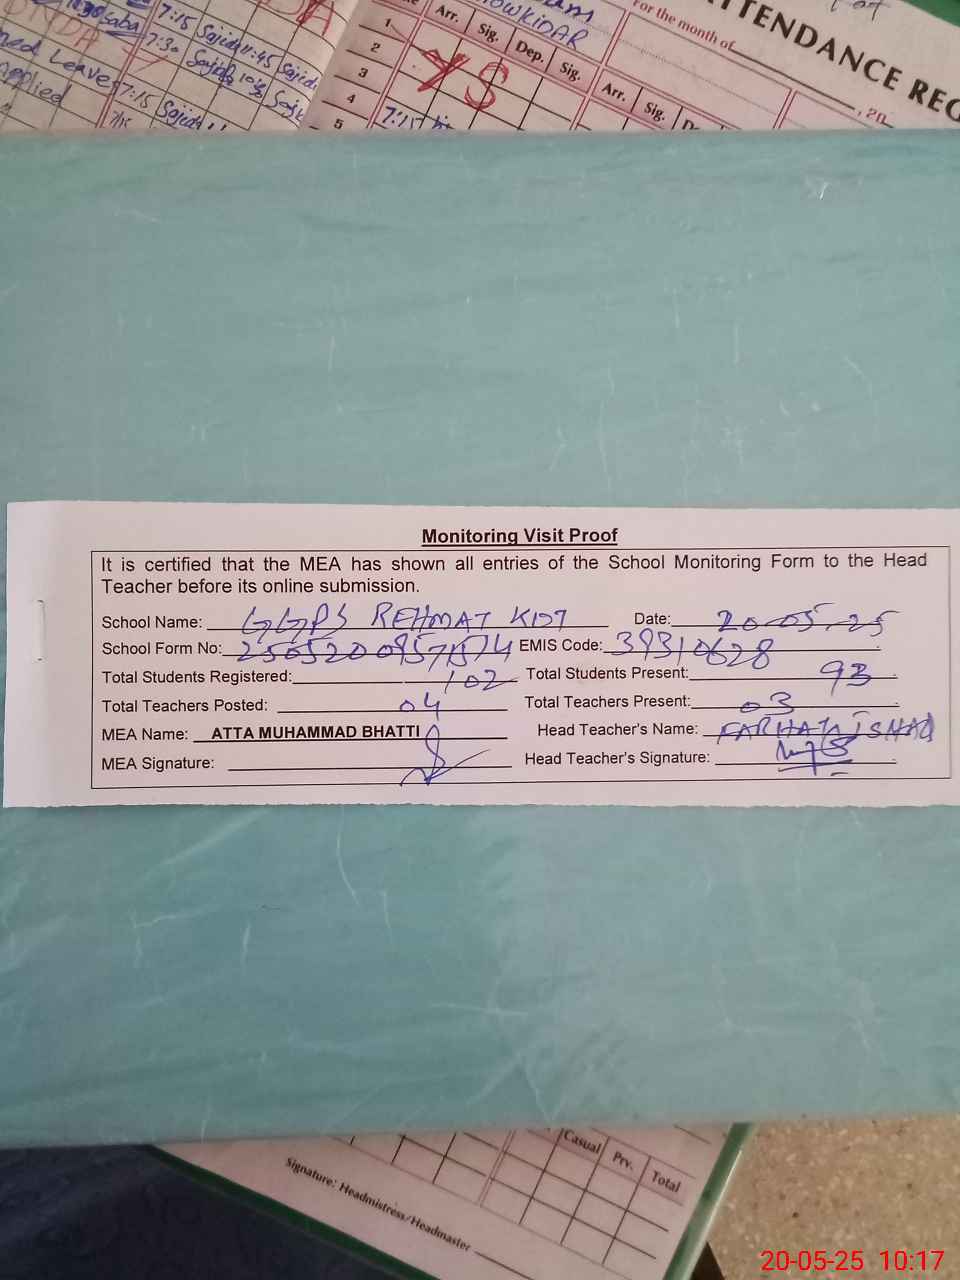 7:15 Sajida 11:45 Sajida
7:30 Sajida
Leave 7:15 Sajida
applied
Arr. Sig. Dep. Sig.
Arr. Sig.
1
2
3
4 7:15
5
OWKIDAR
For the month of , 20
TTENDANCE REG
Monitoring Visit Proof
It is certified that the MEA has shown all entries of the School Monitoring Form to the Head
Teacher before its online submission.
School Name: GGPS REHMAT KOT Date: 20-05-25
School Form No: EMIS Code: 39310628
Total Students Registered: 102 Total Students Present: 93
Total Teachers Posted: 04 Total Teachers Present: 03
MEA Name: ATTA MUHAMMAD BHATTI Head Teacher's Name: FARHAT ISHAQ
MEA Signature: Head Teacher's Signature:
Casual Prv. Total
Signature: Headmistress/Headmaster
20-05-25 10:17